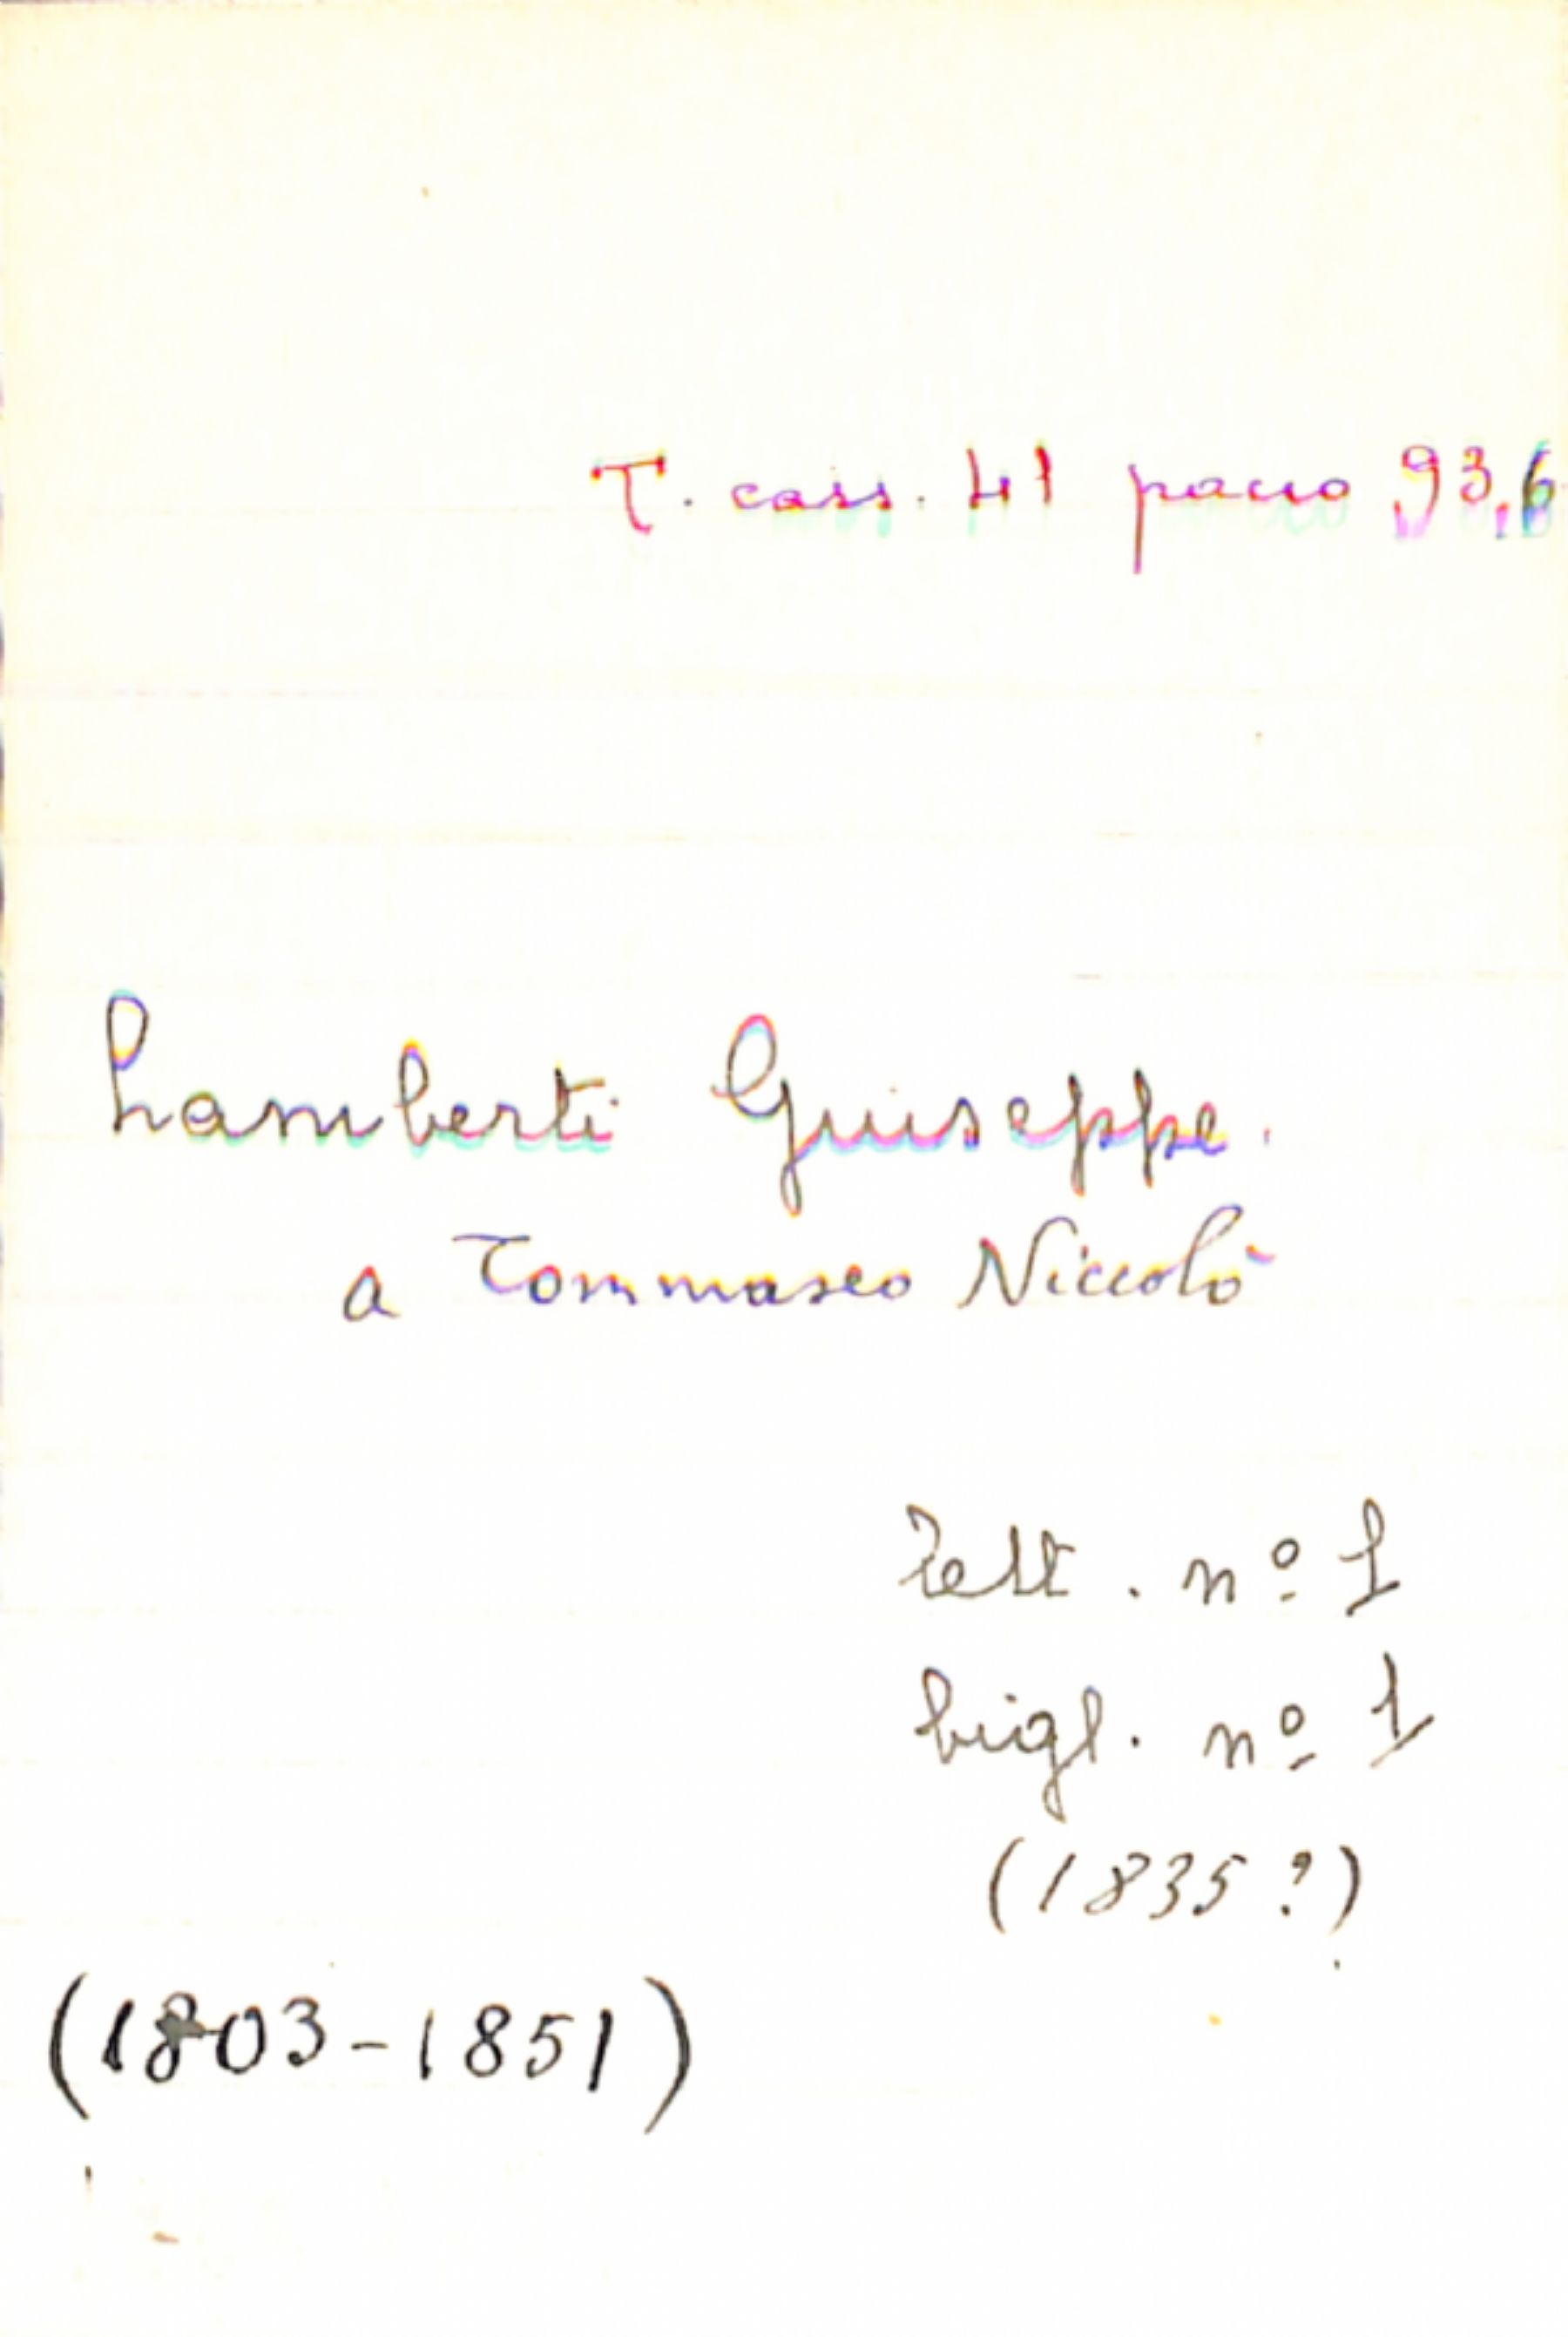 T. cass. 41 pacco 93,6
Lamberti Giuseppe.
a Tommaseo Niccolò
lett. nº 1
bigl. nº 1
(1835?)
(1803-1851)